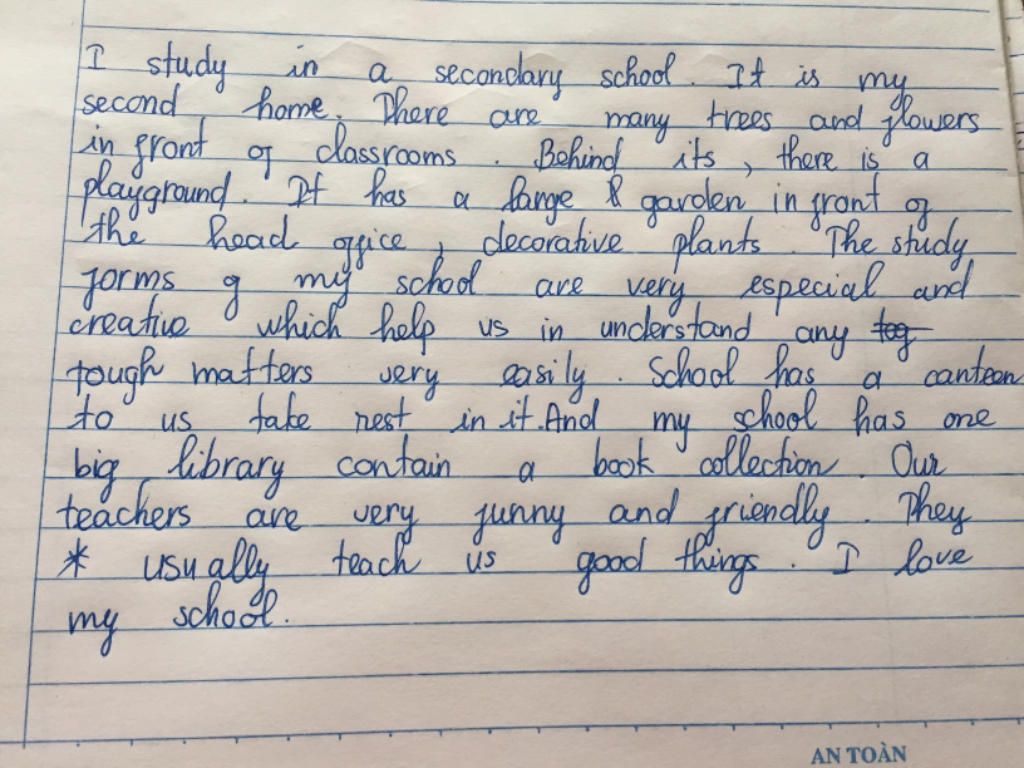 I study in a secondary school. It is my
second home. There are many trees and flowers
in front of classrooms. Behind its, there is a
playground. It has a large garden in front of
the head office, decorative plants. The study
forms of my school are very especial and
creative which help us in understand any
tough matters very easily. School has a canteen
to us take rest in it. And my school has one
big library contain a book collection. Our
teachers are very funny and friendly. They
* usually teach us good things. I love
my school.
AN TOÀN